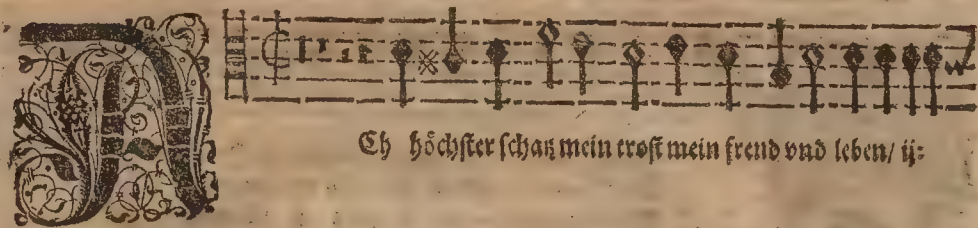 ACh höchster schatz mein trost mein freud vnd leben/ ij: